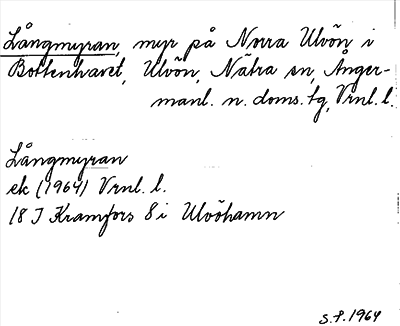 Långmyran, myr på Norra Ulvön i
Bottenhavet, Ulvön, Nätra sn, Ånger-
manl. n. doms. tg, Vrnl. l.
Långmyran
ek (1964) Vrnl. l.
18 I Kramfors 8 i Ulvöhamn
S.F. 1964